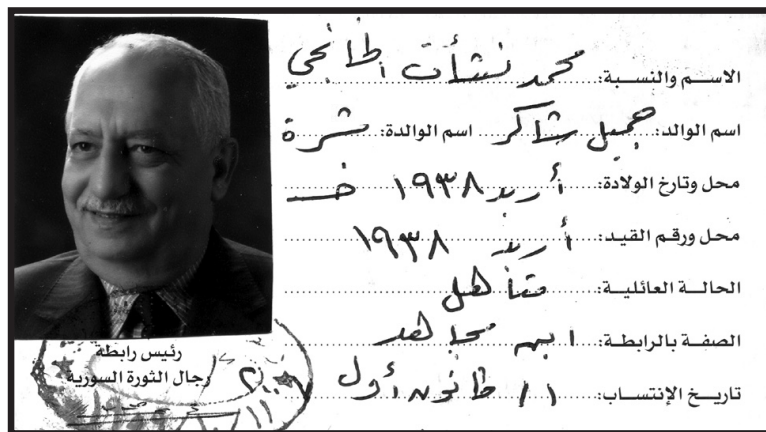 الاسم والنسبة: محمد نشأت
اسم الوالد: جميل شاكر اسم الوالدة:
محل وتارخ الولادة: أربد ١٩٣٨
محل ورقم القيد: أربد ١٩٣٨
الحالة العائلية: متأهل
الصفة بالرابطة: ابن مجاهد
تاريخ الإنتساب: ١/ كانون أول
رئيس رابطة
رجال الثورة السورية